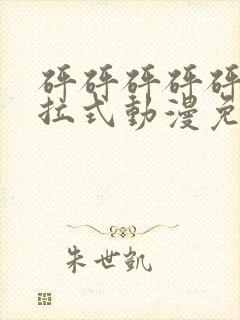 砰砰砰砰砰
拉式動漫免
朱世凱